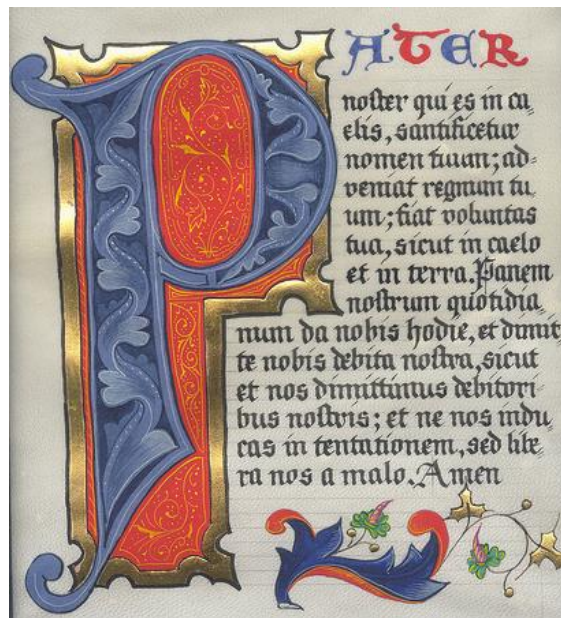 PATER
noster qui es in ca-
elis, santificetur
nomen tuum; ad-
veniat regnum tu-
um; fiat voluntas
tua, sicut in caelo
et in terra. Panem
nostrum quotidia-
num da nobis hodie, et dimit
te nobis debita nostra, sicut
et nos dimittimus debitori-
bus nostris; et ne nos indu-
cas in tentationem, sed libe-
ra nos a malo. Amen